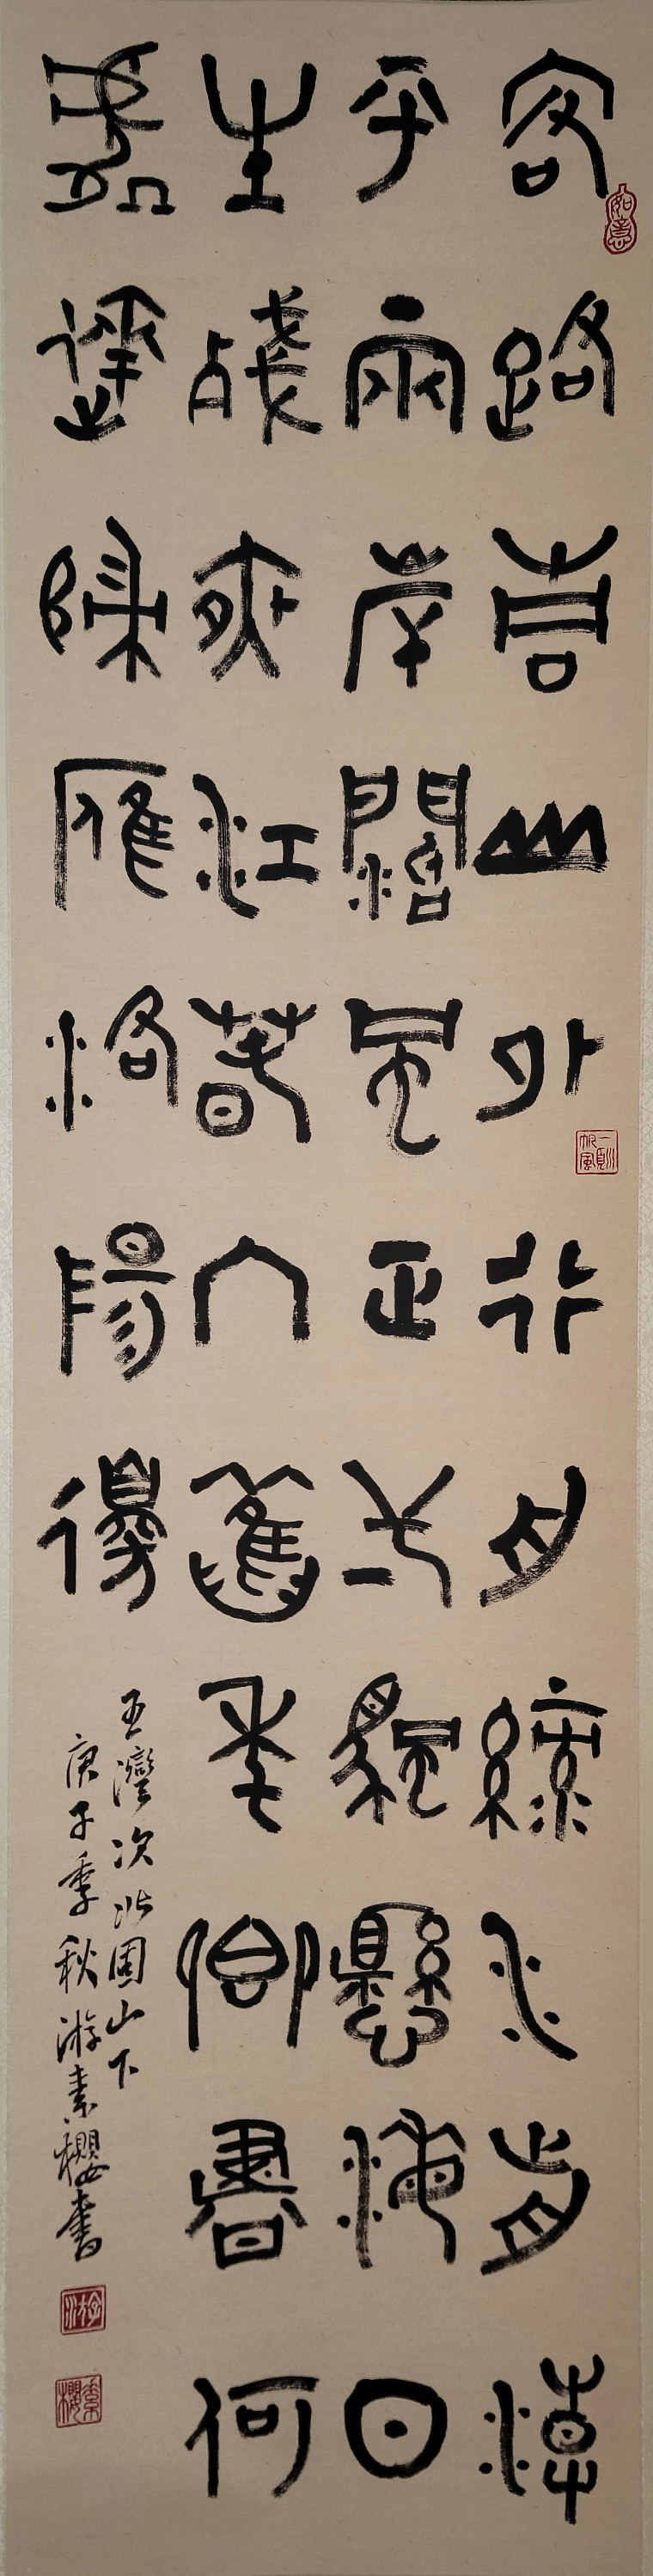 客路青山外行舟綠水前潮
平兩岸闊風正一帆懸海日
生殘夜江春入舊年鄉書何
處達歸雁洛陽邊
王灣次北固山下
庚子季秋游素櫻書
如意
一帆風順
游
素櫻